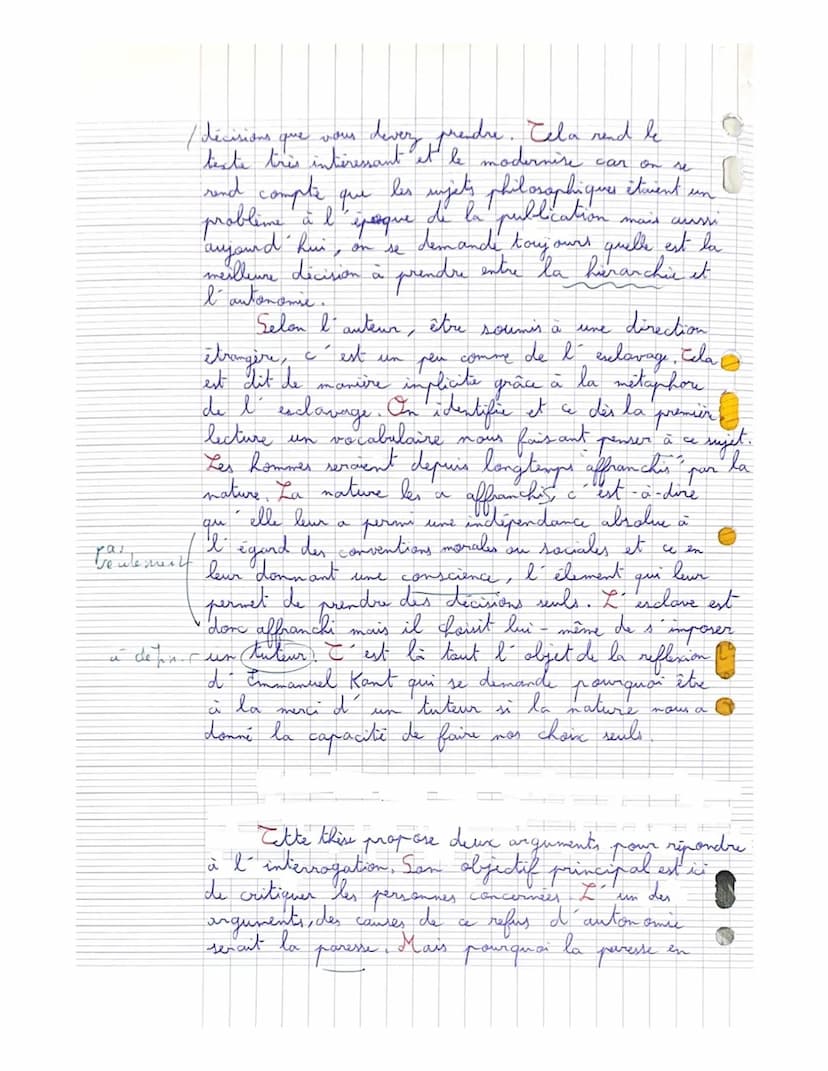 décisions que vous devez prendre. Cela rend le
texte très intéressant et le modernise car on se
rend compte que les sujets philosophiques étaient un
problème à l'époque de la publication mais aussi
aujourd'hui, on se demande toujours quelle est la
meilleure décision à prendre entre la hiérarchie et
l'autonomie.
Selon l'auteur, être soumis à une direction
étrangère, c'est un peu comme de l'esclavage. Cela
est dit de manière implicite grâce à la métaphore
de l'esclavage. On identifie et ce dès la première
lecture un vocabulaire nous faisant penser à ce sujet.
Les hommes seraient depuis longtemps "affranchis" par la
nature. La nature les a affranchis, c'est-à-dire
qu'elle leur a permi une indépendance absolue à
pas seulement
l'égard des conventions morales ou sociales et ce en
leur donnant une conscience, l'élement qui leur
permet de prendre des décisions seuls. L'esclave est
donc affranchi mais il choisit lui-même de s'imposer
à définir
un tuteur. C'est là tout l'objet de la reflexion
d'Emmanuel Kant qui se demande pourquoi être
à la merci d'un tuteur si la nature nous a
donné la capacité de faire nos choix seuls.
Cette thèse propose deux arguments pour répondre
à l'interrogation. Son objectif principal est ici
de critiquer les personnes concernées. L'un des
arguments, des causes de ce refus d'autonomie
serait la paresse. Mais pourquoi la paresse en